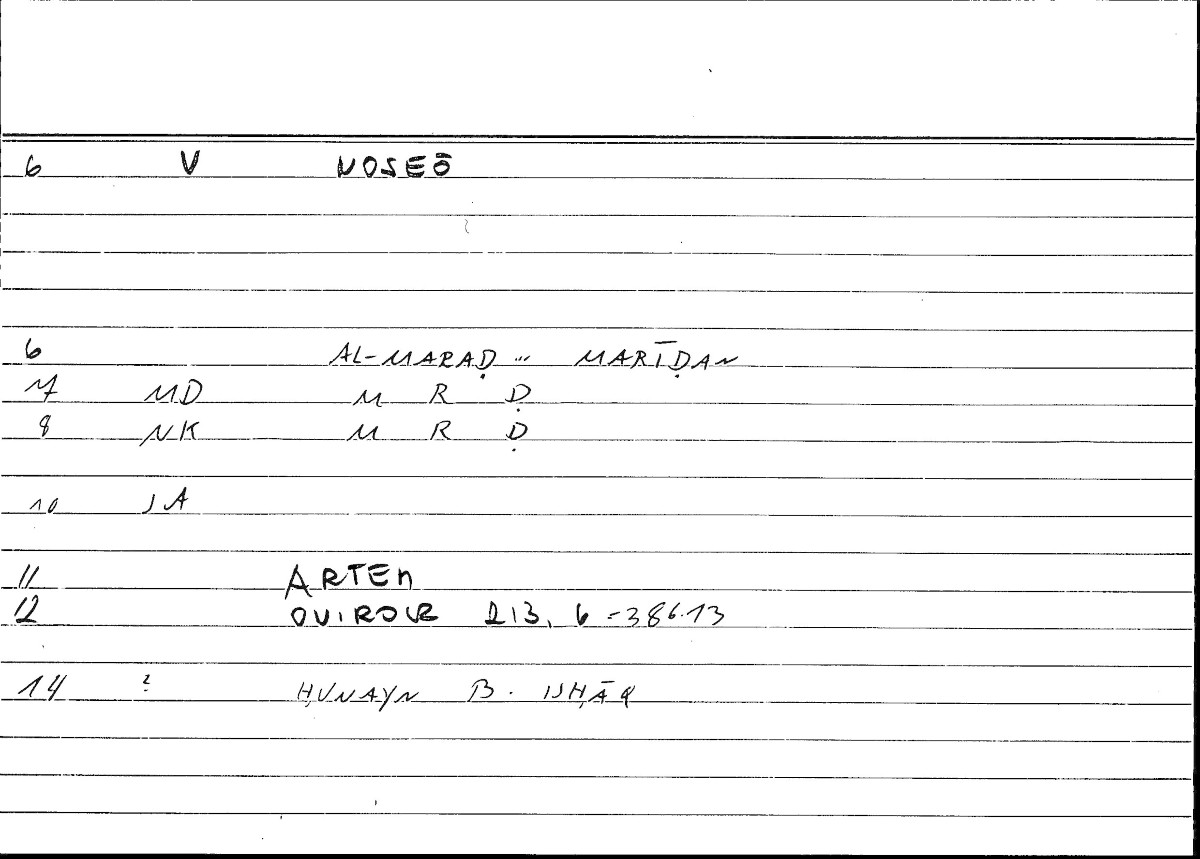 6 V NOSEŌ
6 AL-MARAḌ ... MARĪḌAN
7 MD M R Ḍ
8 NK M R Ḍ
10 IA
11 ARTEM
12 ONIROCR 213, 6 = 386.13
14 ? ḤUNAYN B. ISḤĀQ